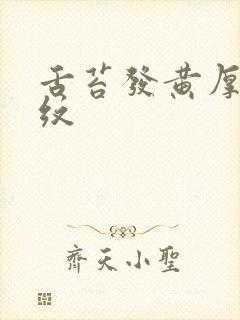 舌苔發黃厚
紋
齊天小聖